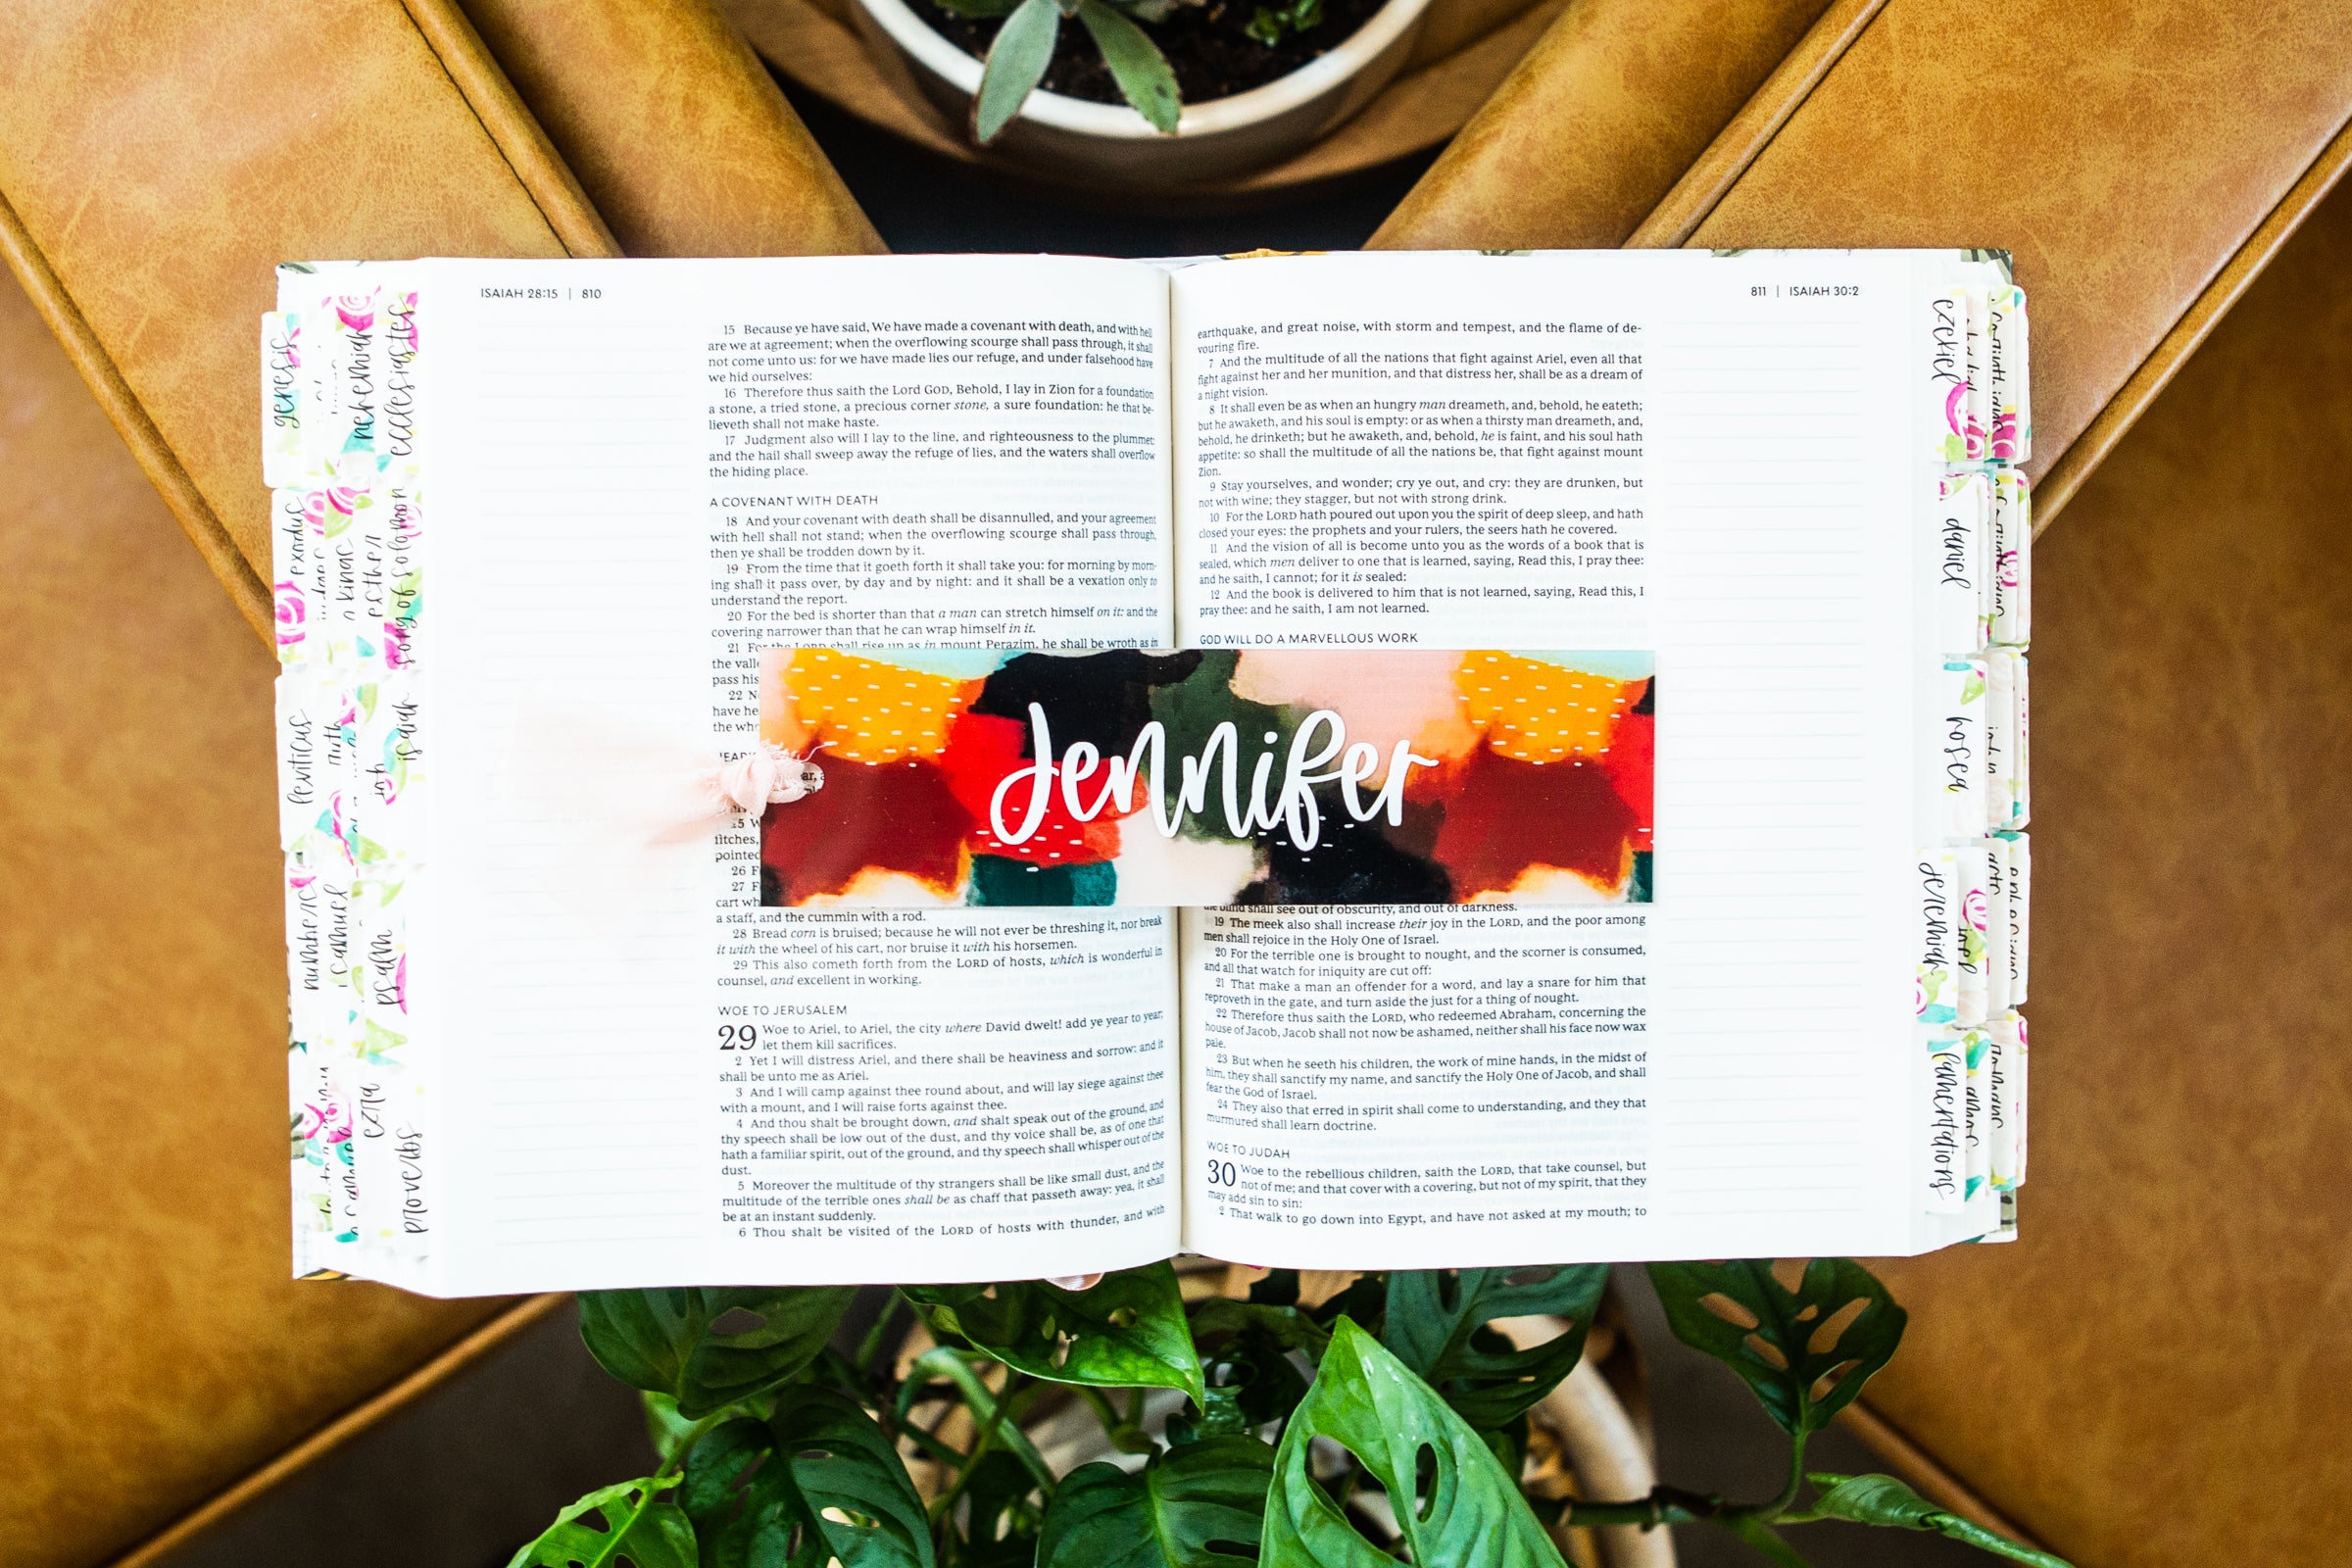 ISAIAH 28:15 | 810
15 Because ye have said, We have made a covenant with death, and with hell
are we at agreement; when the overflowing scourge shall pass through, it shall
not come unto us: for we have made lies our refuge, and under falsehood have
we hid ourselves:
16 Therefore thus saith the Lord GOD, Behold, I lay in Zion for a foundation
a stone, a tried stone, a precious corner stone, a sure foundation: he that be-
lieveth shall not make haste.
17 Judgment also will I lay to the line, and righteousness to the plummet:
and the hail shall sweep away the refuge of lies, and the waters shall overflow
the hiding place.
A COVENANT WITH DEATH
18 And your covenant with death shall be disannulled, and your agreement
with hell shall not stand; when the overflowing scourge shall pass through,
then ye shall be trodden down by it.
19 From the time that it goeth forth it shall take you: for morning by morn-
ing shall it pass over, by day and by night: and it shall be a vexation only to
understand the report.
20 For the bed is shorter than that a man can stretch himself on it: and the
covering narrower than that he can wrap himself in it.
21 For the LORD shall rise up as in mount Perazim, he shall be wroth as in
the
pass his
22
have
the
pointed
26
27
cart
a staff, and the cummin with a rod.
28 Bread corn is bruised; because he will not ever be threshing it, nor break
it with the wheel of his cart, nor bruise it with his horsemen.
29 This also cometh forth from the LORD of hosts, which is wonderful in
counsel, and excellent in working.
WOE TO JERUSALEM
29 Woe to Ariel, to Ariel, the city where David dwelt! add ye year to year;
let them kill sacrifices.
2 Yet I will distress Ariel, and there shall be heaviness and sorrow: and it
shall be unto me as Ariel.
3 And I will camp against thee round about, and will lay siege against thee
with a mount, and I will raise forts against thee.
4 And thou shalt be brought down, and shalt speak out of the ground, and
thy speech shall be low out of the dust, and thy voice shall be, as of one that
hath a familiar spirit, out of the ground, and thy speech shall whisper out of the
dust.
5 Moreover the multitude of thy strangers shall be like small dust, and the
multitude of the terrible ones shall be as chaff that passeth away: yea, it shall
be at an instant suddenly.
6 Thou shalt be visited of the LORD of hosts with thunder, and with
811 | ISAIAH 30:2
earthquake, and great noise, with storm and tempest, and the flame of de-
vouring fire.
7 And the multitude of all the nations that fight against Ariel, even all that
fight against her and her munition, and that distress her, shall be as a dream of
a night vision.
8 It shall even be as when an hungry man dreameth, and, behold, he eateth;
but he awaketh, and his soul is empty: or as when a thirsty man dreameth, and,
behold, he drinketh; but he awaketh, and, behold, he is faint, and his soul hath
appetite: so shall the multitude of all the nations be, that fight against mount
Zion.
9 Stay yourselves, and wonder; cry ye out, and cry: they are drunken, but
not with wine; they stagger, but not with strong drink.
10 For the LORD hath poured out upon you the spirit of deep sleep, and hath
closed your eyes: the prophets and your rulers, the seers hath he covered.
11 And the vision of all is become unto you as the words of a book that is
sealed, which men deliver to one that is learned, saying, Read this, I pray thee:
and he saith, I cannot; for it is sealed:
12 And the book is delivered to him that is not learned, saying, Read this, I
pray thee: and he saith, I am not learned.
GOD WILL DO A MARVELLOUS WORK
Jennifer
the blind shall see out of obscurity, and out of darkness.
19 The meek also shall increase their joy in the LORD, and the poor among
men shall rejoice in the Holy One of Israel.
20 For the terrible one is brought to nought, and the scorner is consumed,
and all that watch for iniquity are cut off:
21 That make a man an offender for a word, and lay a snare for him that
reproveth in the gate, and turn aside the just for a thing of nought.
22 Therefore thus saith the LORD, who redeemed Abraham, concerning the
house of Jacob, Jacob shall not now be ashamed, neither shall his face now wax
pale.
23 But when he seeth his children, the work of mine hands, in the midst of
him, they shall sanctify my name, and sanctify the Holy One of Jacob, and shall
fear the God of Israel.
24 They also that erred in spirit shall come to understanding, and they that
murmured shall learn doctrine.
WOE TO JUDAH
30 Woe to the rebellious children, saith the LORD, that take counsel, but
not of me; and that cover with a covering, but not of my spirit, that they
may add sin to sin:
2 That walk to go down into Egypt, and have not asked at my mouth; to
genesis
nehemiah
ecclesiastes
exodus
esther
song of solomon
leviticus
ruth
isaiah
numbers
psalm
ezra
proverbs
ezekiel
daniel
hosea
jeremiah
joel
lamentations